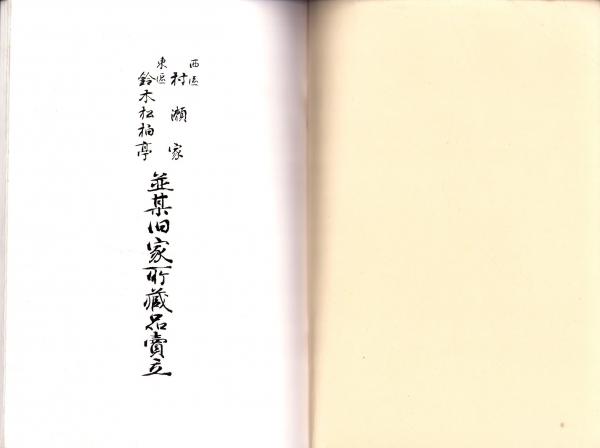 西区
村瀬家
東区
鈴木松柏亭
並某旧家所蔵品賣立